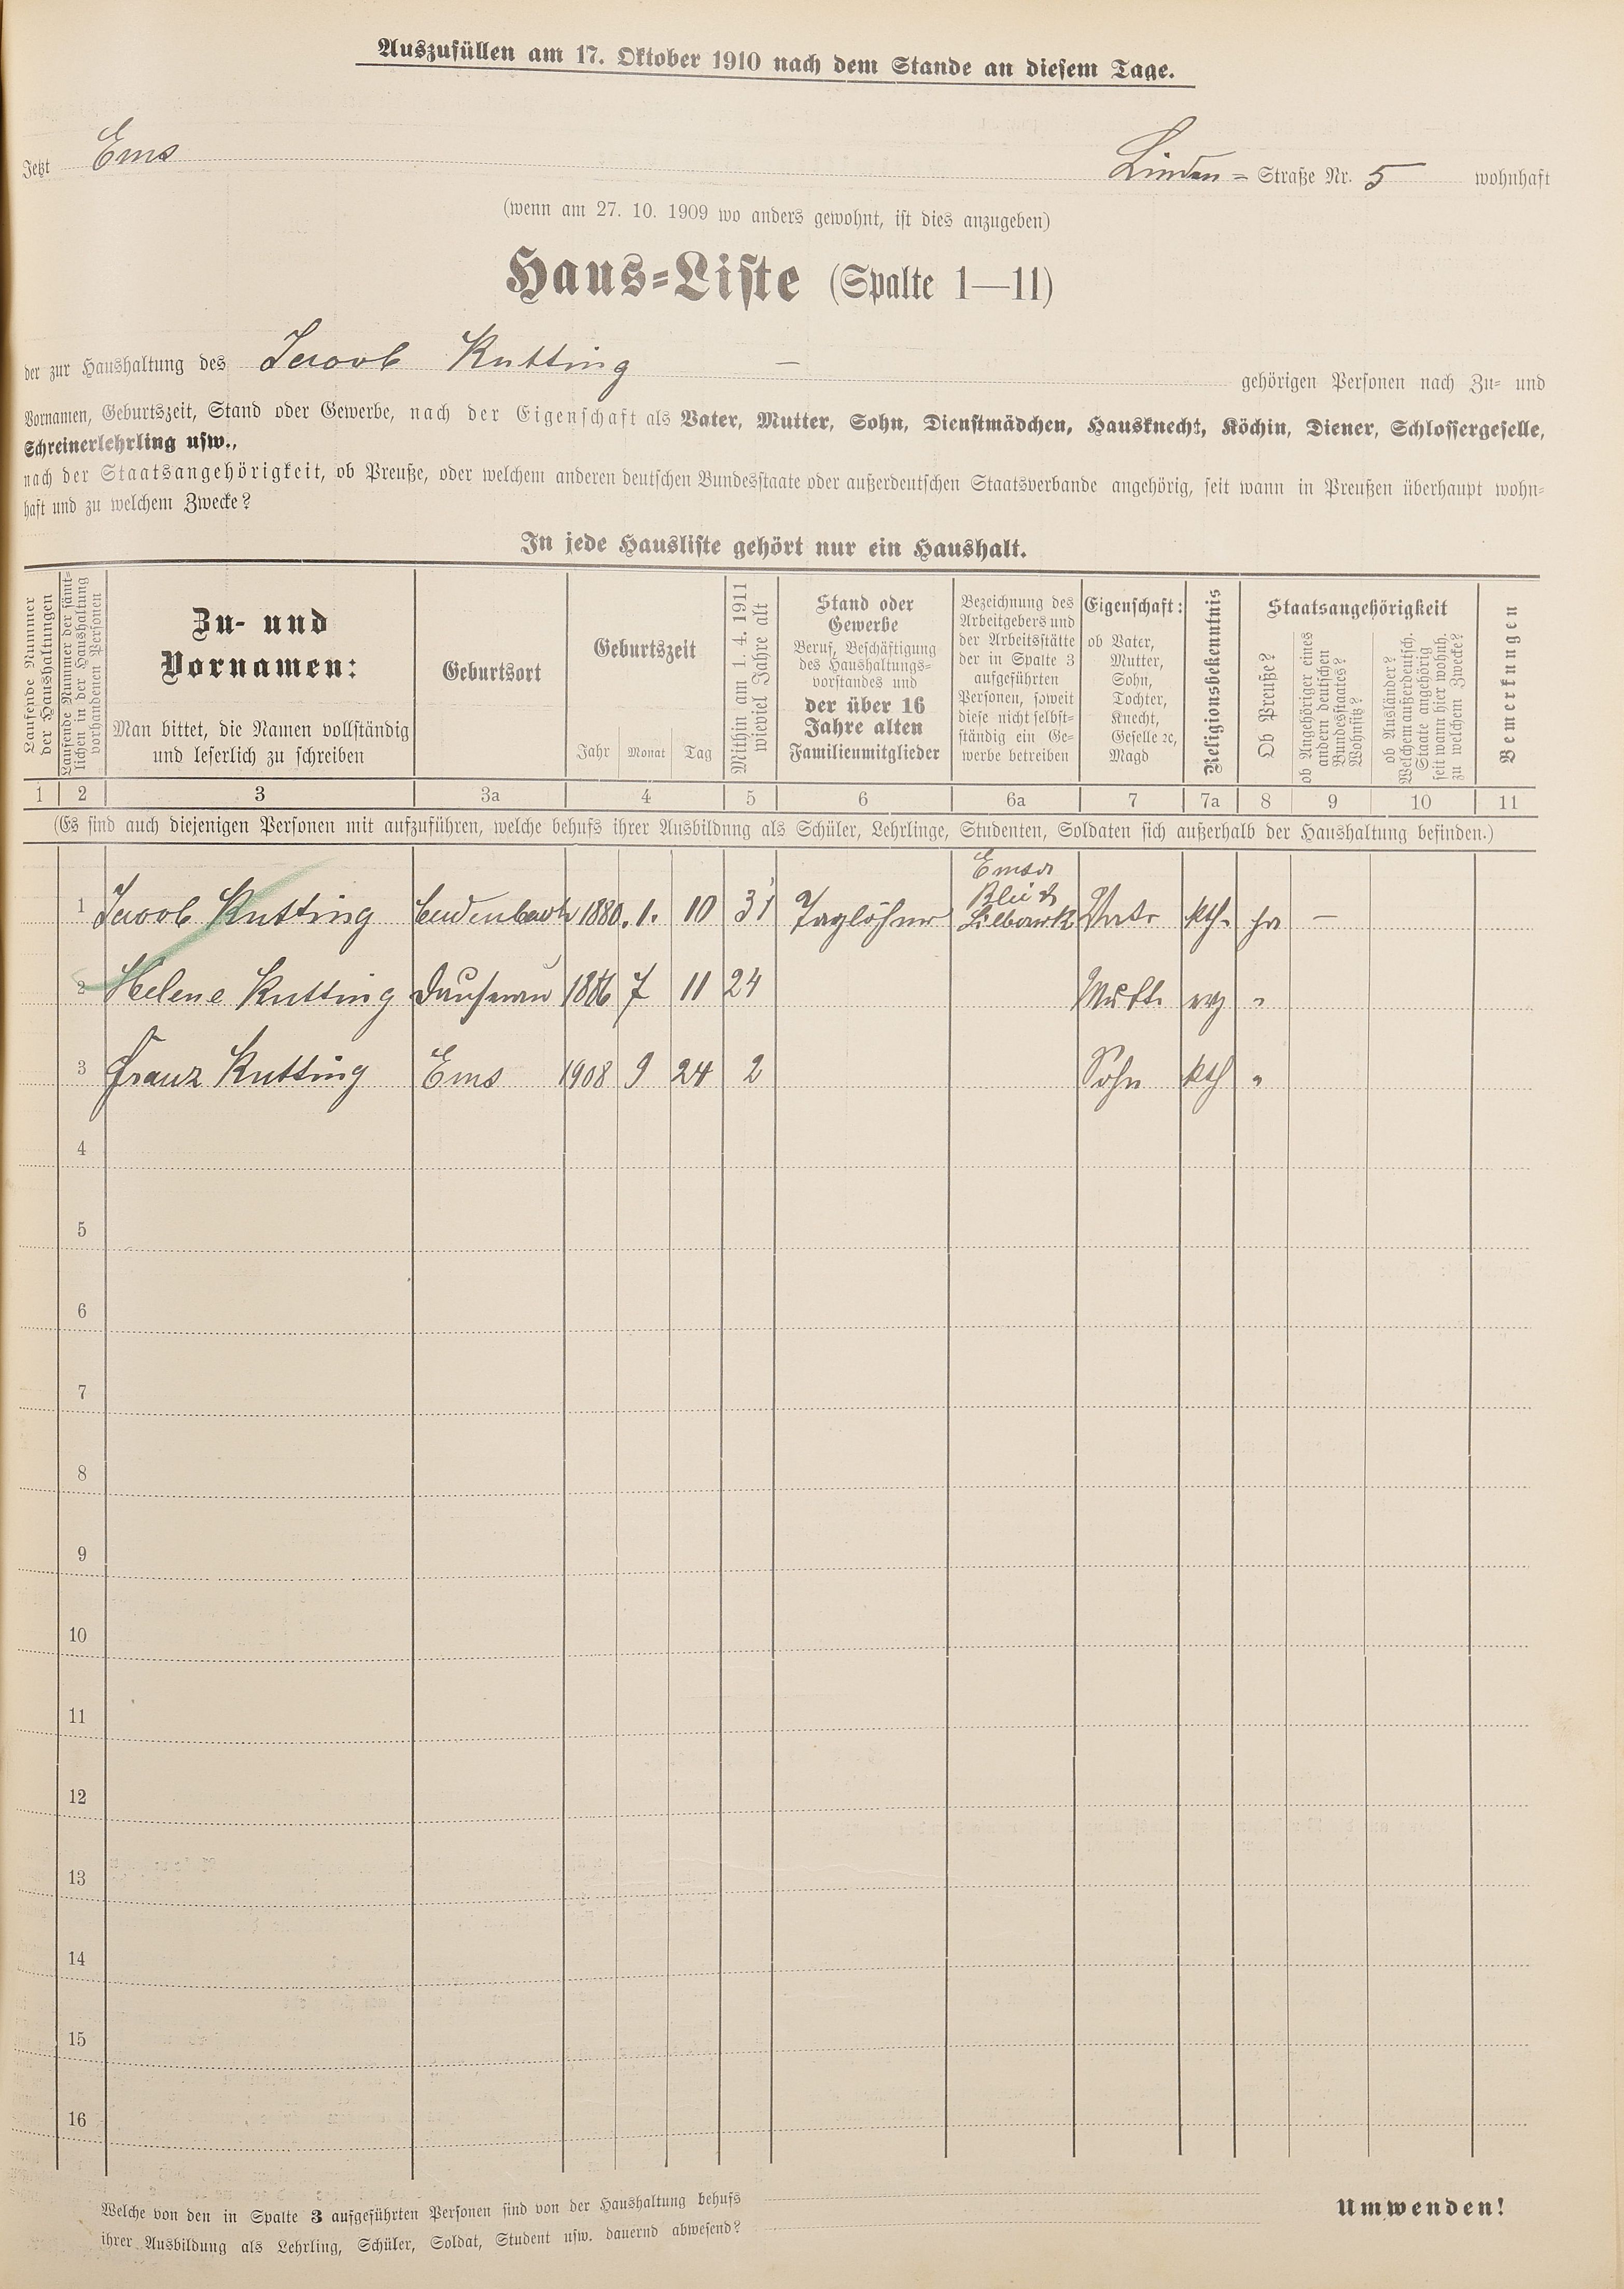 Auszufüllen am 17. Oktober 1910 nach dem Stande an diesem Tage.
Jetzt Ems Linden- Straße Nr. 5 wohnhaft
(wenn am 27. 10. 1909 wo anders gewohnt, ist dies anzugeben)
Haus-Liste (Spalte 1—11)
der zur Haushaltung des Jacob Kutting — gehörigen Personen nach Zu- und
Vornamen, Geburtszeit, Stand oder Gewerbe, nach der Eigenschaft als Vater, Mutter, Sohn, Dienstmädchen, Hausknecht, Köchin, Diener, Schlossergeselle,
Schreinerlehrling usw.,
nach der Staatsangehörigkeit, ob Preuße, oder welchem anderen deutschen Bundesstaate oder außerdeutschen Staatsverbande angehörig, seit wann in Preußen überhaupt wohn-
haft und zu welchem Zwecke?
In jede Hausliste gehört nur ein Haushalt.
Laufende Nummer
der Haushaltungen
Laufende Nummer der sämt-
lichen in der Haushaltung
vorhandenen Personen
Zu- und
Vornamen:
Man bittet, die Namen vollständig
und leserlich zu schreiben
Geburtsort
Geburtszeit
Jahr Monat Tag
Mithin am 1. 4. 1911
wieviel Jahre alt
Stand oder
Gewerbe
Beruf, Beschäftigung
des Haushaltungs-
vorstandes und
der über 16
Jahre alten
Familienmitglieder
Bezeichnung des
Arbeitgebers und
der Arbeitsstätte
der in Spalte 3
aufgeführten
Personen, soweit
diese nicht selbst-
ständig ein Ge-
werbe betreiben
Eigenschaft:
ob Vater,
Mutter,
Sohn,
Tochter,
Knecht,
Geselle ꝛc,
Magd
Religionsbekenntnis
Staatsangehörigkeit
Ob Preuße?
ob Angehöriger eines
andern deutschen
Bundesstaates?
Wohnsitz?
ob Ausländer?
Welchem außerdeutsch.
Staate angehörig
seit wann hier wohnh.
zu welchem Zwecke?
Bemerkungen
1 2 3 3a 4 5 6 6a 7 7a 8 9 10 11
(Es sind auch diejenigen Personen mit aufzuführen, welche behufs ihrer Ausbildung als Schüler, Lehrlinge, Studenten, Soldaten sich außerhalb der Haushaltung befinden.)
Emser
Blei &
1 Jacob Kutting 1880. 1. 10 31 Taglöhner Vater kth. ja —
2 Helene Kutting Dausenau 1886 7 11 24 Mutter evg "
3 Franz Kutting Ems 1908 9 24 2 Sohn kth "
4
5
6
7
8
9
10
11
12
13
14
15
16
Welche von den in Spalte 3 aufgeführten Personen sind von der Haushaltung behufs
ihrer Ausbildung als Lehrling, Schüler, Soldat, Student usw. dauernd abwesend?
Umwenden!